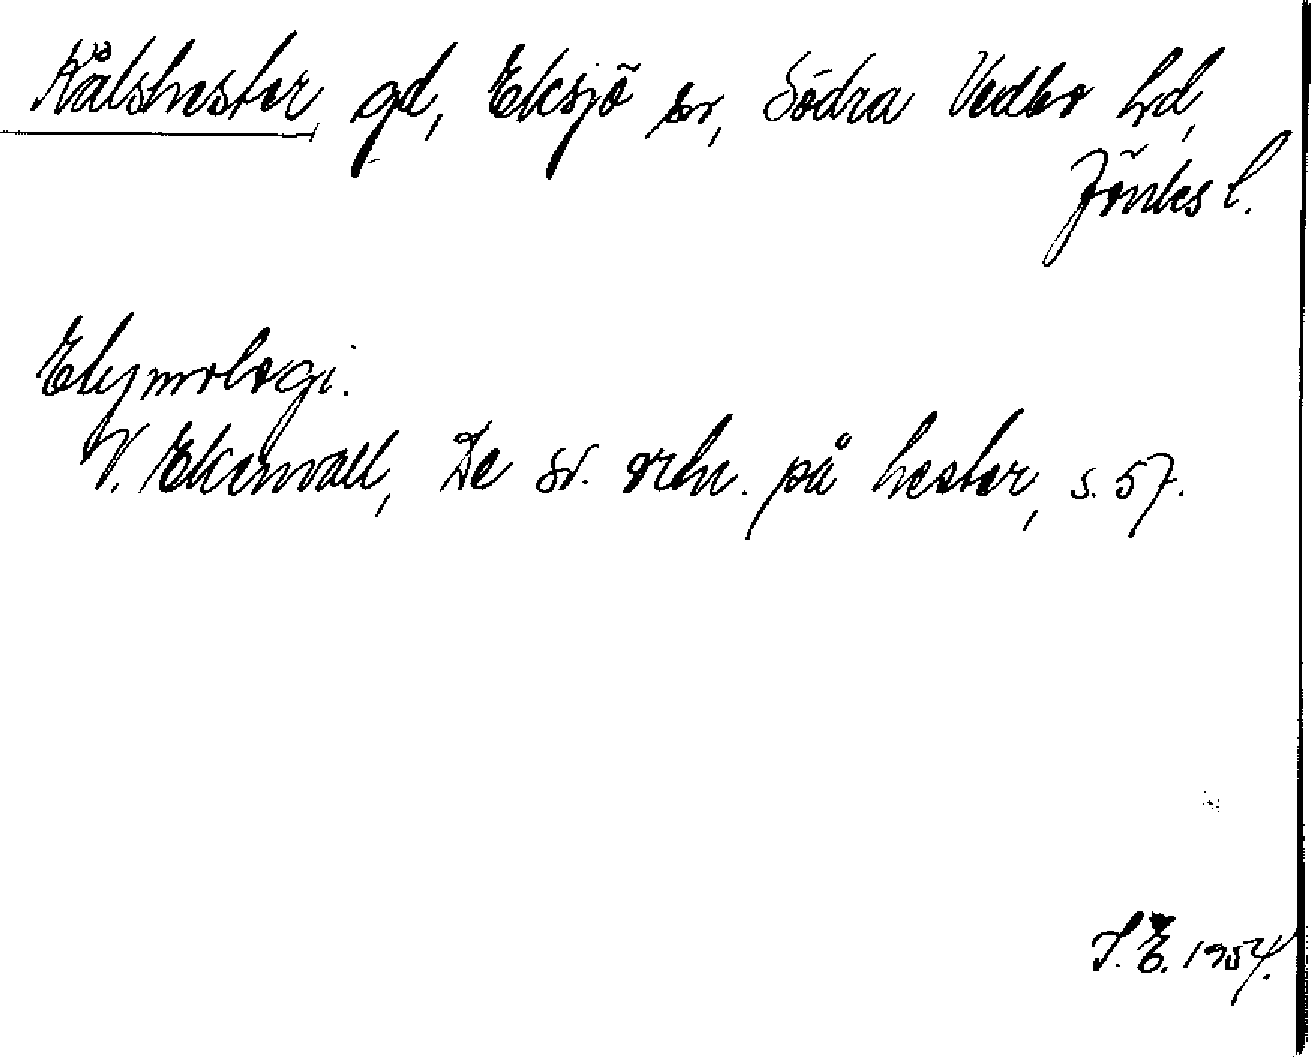 Kålshester gd, Eksjö sn, Södra Vedbo hd,
Jönks l.
Etymologi.
V. Ekenvall, De sv. ortn. på hester, s. 57.
S. E. 1954.